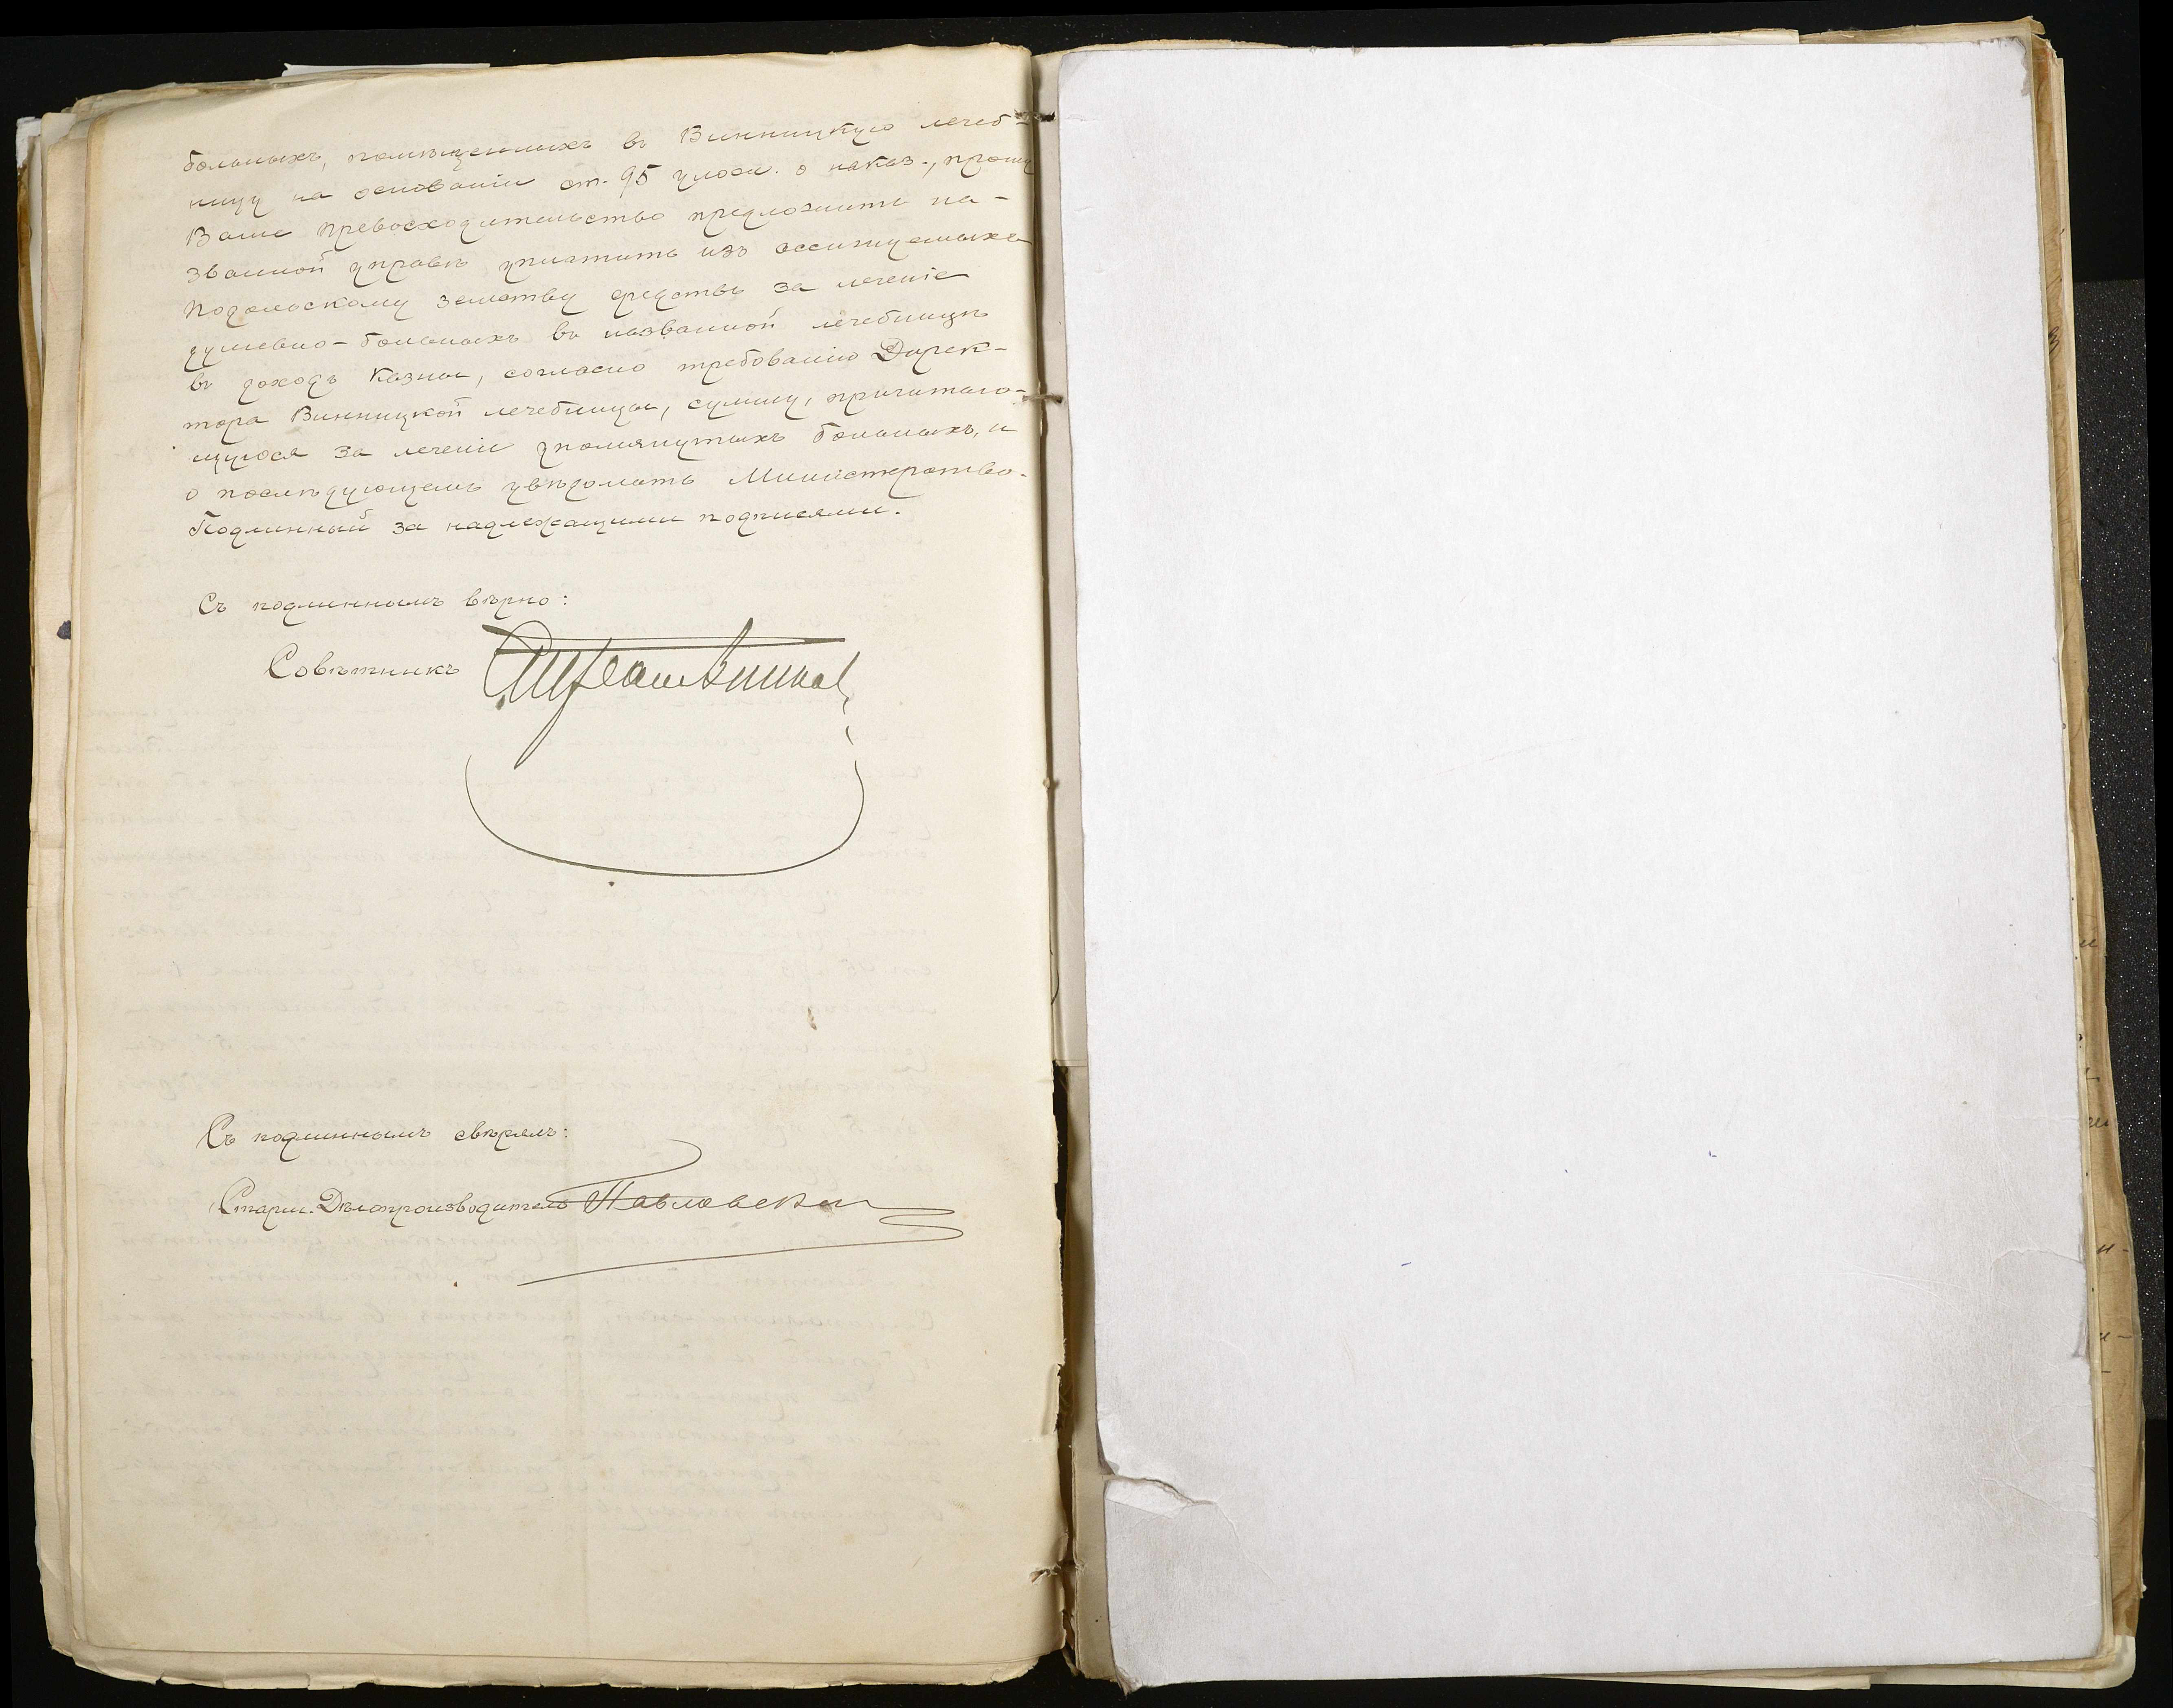 больныхъ, помѣщенныхъ въ Винницкую лечеб-
ницу на основаніи ст. 95 улож. о наказ., прошу
Ваше Превосходительство предложить на-
званной управѣ уплатить изъ ассигнуемыхъ
Подольскому земству средствъ за леченіе
душевно-больныхъ въ названной лечебницѣ
въ доходъ казны, согласно требованію Дирек-
тора Винницкой лечебницы, сумму, причитаю-
щуюся за леченіе упомянутыхъ больныхъ, и
о послѣдующемъ увѣдомить Министерство.
Подлинный за надлежащими подписями.
Съ подлиннымъ вѣрно:
Совѣтникъ
Съ подлиннымъ свѣрялъ:
Старш. Дѣлопроизводитель Павловскій